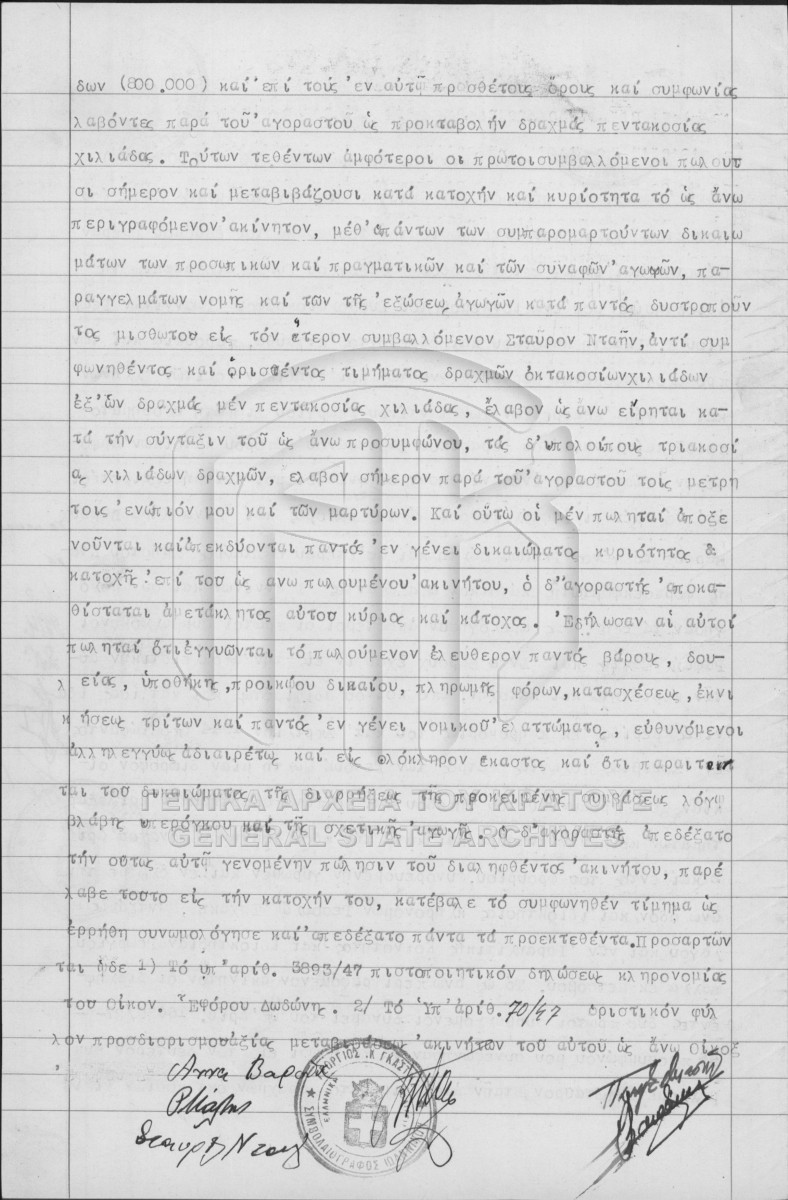 δων (800.000) καί 'επί τούς 'εν αὐτῷ προσθέτους ὅρους καί συμφωνίας
λαβόντες παρά τοῦ 'αγοραστοῦ ὡς προκταβολήν δραχμάς πεντακοσίας
χιλιάδας. Τούτων τεθέντων ἀμφότεροι οι πρωτοισυμβαλλόμενοι πωλουτ
σι σήμερον καί μεταβιβάζουσι κατά κατοχήν καί κυρίοτητα τό ὡς ἄνω
περιγραφόμενον 'ακίνητον, μέθ'απάντων των συμπαρομαρτούντων δικαιω
μάτων των προσωπικών καί πραγματικῶν καί τῶν συναφῶν 'αγωγῶν, πα-
ραγγελμάτων νομῆς καί των τῆς 'εξώσεως ἀγωγῶν κατά παντός δυστροποῦν
τος μισθωτου εἰς τόν ἕτερον συμβαλλόμενον Σταῦρον Νταῆν, ἀντί συμ
φωνηθέντος καί ὁρισθέντος τιμήματος δραχμῶν ὀκτακοσίωνχιλιάδων
ἐξ'ὧν δραχμάς μέν πεντακοσίας χιλιάδας, ἔλαβον ὡς ἄνω εἴρηται κα-
τά τήν σύνταξιν τοῦ ὡς ἄνω προσυμφώνου, τάς δ'υπολοίπους τριακοσί
ας χιλιάδων δραχμῶν, ελαβον σήμερον παρά τοῦ 'αγοραστοῦ τοις μετρη
τοις 'ενώπιόν μου καί τῶν μαρτύρων. Καί οὕτω οἱ μέν πωληταί ἀποξε
νοῦνται καίἀπεκδύονται παντός 'εν γένει δικαιώματος κυριότητος &
κατοχῆς 'επί του ὡς ανω πωλουμένου 'ακινήτου, ὁ δ''αγοραστής 'αποκα-
θίσταται ἀμετάκλητος αὐτου κύριος καί κάτοχος. 'Εδήλωσαν αἱ αὐτοί
πωληταί ὅτιἐγγυῶνται τό πωλούμενον ἐλεύθερον παντός βάρους, δου-
λείας, ὑποθήκης, προικώου δικαίου, πληρωμῆς φόρων, κατασχέσεως, ἐκνι
κήσεως τρίτων καί παντός 'εν γένει νομικοῦ 'ελαττώματος, εὐθυνόμενοι
ἀλληλεγγύως ἀδιαιρέτως καί εἰς ὁλόκληρον ἕκαστος καί ὅτι παραιτοῦν
ται του δικαιώματος τῆς διαρρήξεως τῆς προκειμένης συμβάσεως λόγῳ
ΓΕΝΙΚΑ ΑΡΧΕΙΑ ΤΟΥ ΚΡΑΤΟΥΣ
βλάβης υπερόγκου καί τῆς σχετικῆς 'αγωγῆς. Ὁ δ'αγοραστής ἀπεδέξατο
GENERAL STATE ARCHIVES
τήν ούτως αὐτῷ γενομένην πώλησιν τοῦ διαληφθέντος 'ακινήτου, παρέ
λαβε τουτο εἰς τήν κατοχήν του, κατέβαλε τό συμφωνηθέν τίμημα ὡς
ἐρρήθη συνωμολόγησε καί'απεδέξατο πάντα τά προεκτεθέντα. Προσαρτῶν
ται ὧδε 1) Τό υπ'αριθ. 3893/47 πιστοποιητικόν δηλώσεως κληρονομίας
του Οἰκον. 'Εφόρου Δωδώνης. 2/ Τό Ὑπ'ἀριθ. 70/47 ὁριστικόν φύλ
λον προσδιορισμουἀξίας μεταβιβάσεως 'ακινήτων τοῦ αὐτοῦ ὡς ἄνω Οἰκοξ
Σταυρος Νταης
ΓΕΩΡΓΙΟΣ Κ.
ΣΥΜΒΟΛΑΙΟΓΡΑΦΟΣ